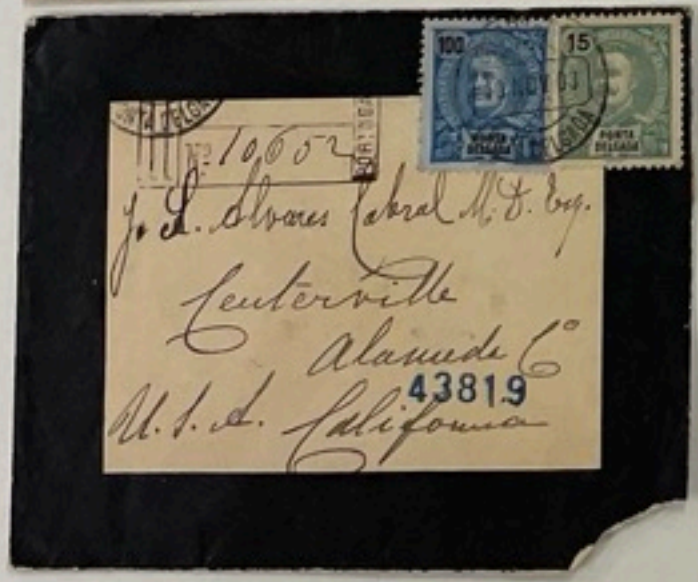 100 15
PONTA DELGADA PONTA DELGADA
NOV 03
PONTA DELGADA
Nº 10652
J. S. Alvares Cabral M.D. Esq.
Centerville
Alameda Cº
43819
U. S. A. California